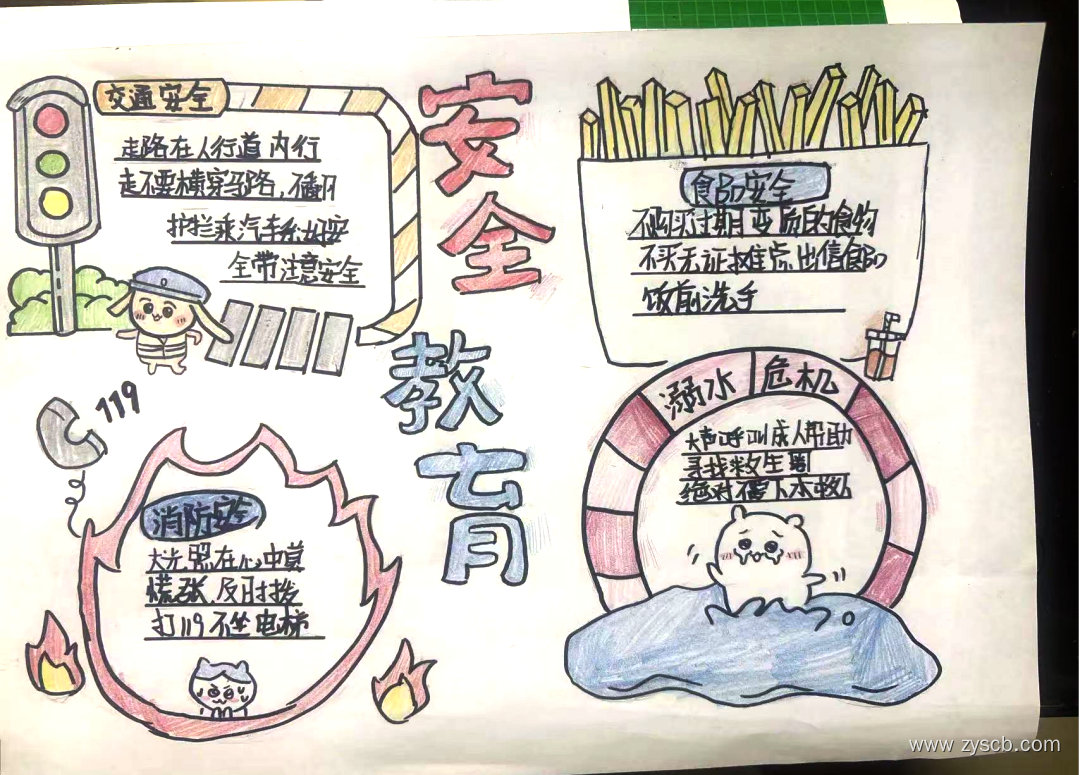 安全
教育
交通安全
走路在人行道内行
走不要横穿马路,不翻
护拦乘汽车系好安
全带注意安全
食品安全
不购买过期变质的食物
不买无证摊点出信食品
饭前洗手
119
消防安全
大火 在心中莫
慌张 及时拨
打119 不坐电梯
溺水 危机
大声呼叫成人帮助
寻找救生圈
绝对不要下水救人
www.zyscb.com